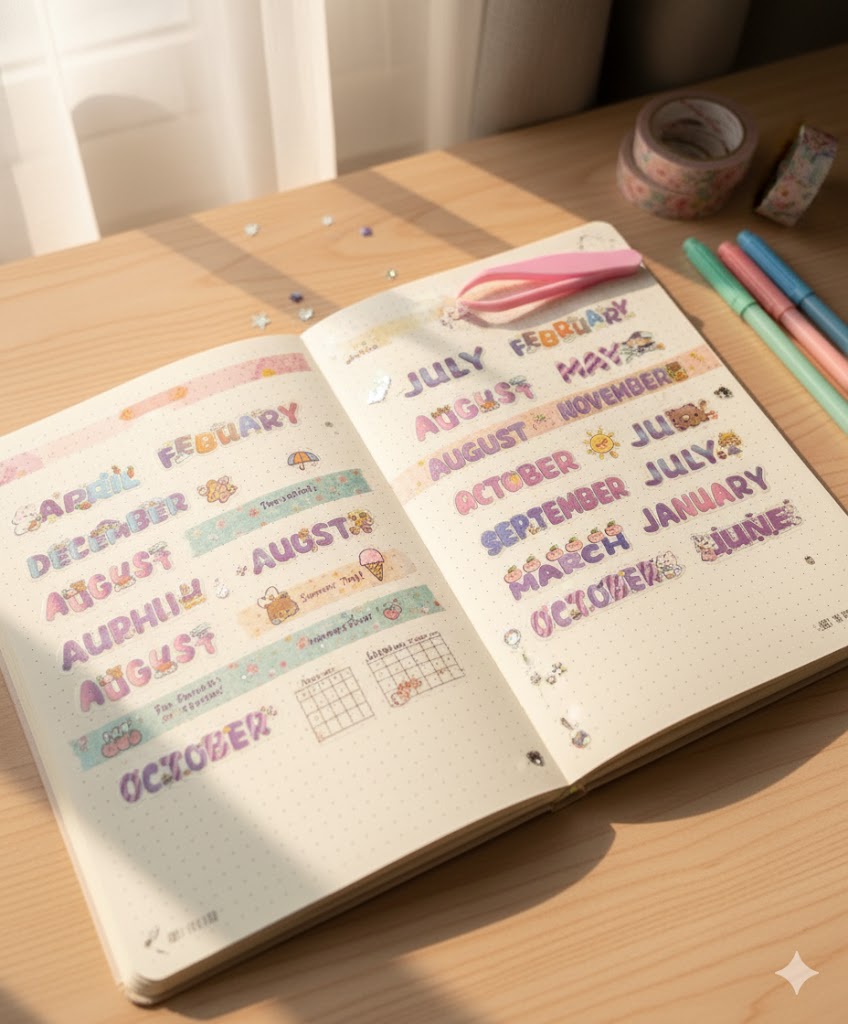 FEBUARY
APRIL
DECEMBER
AUGUST
AUGUST
AURHLIH
AUGUST
OCTOBER
JULY
FEBRUARY
AUGUST
MAY
AUGUST
NOVEMBER
ACTOBER
JU
SEPTEMBER
JULY
MARCH
JANUARY
OCTOBER
JUNE